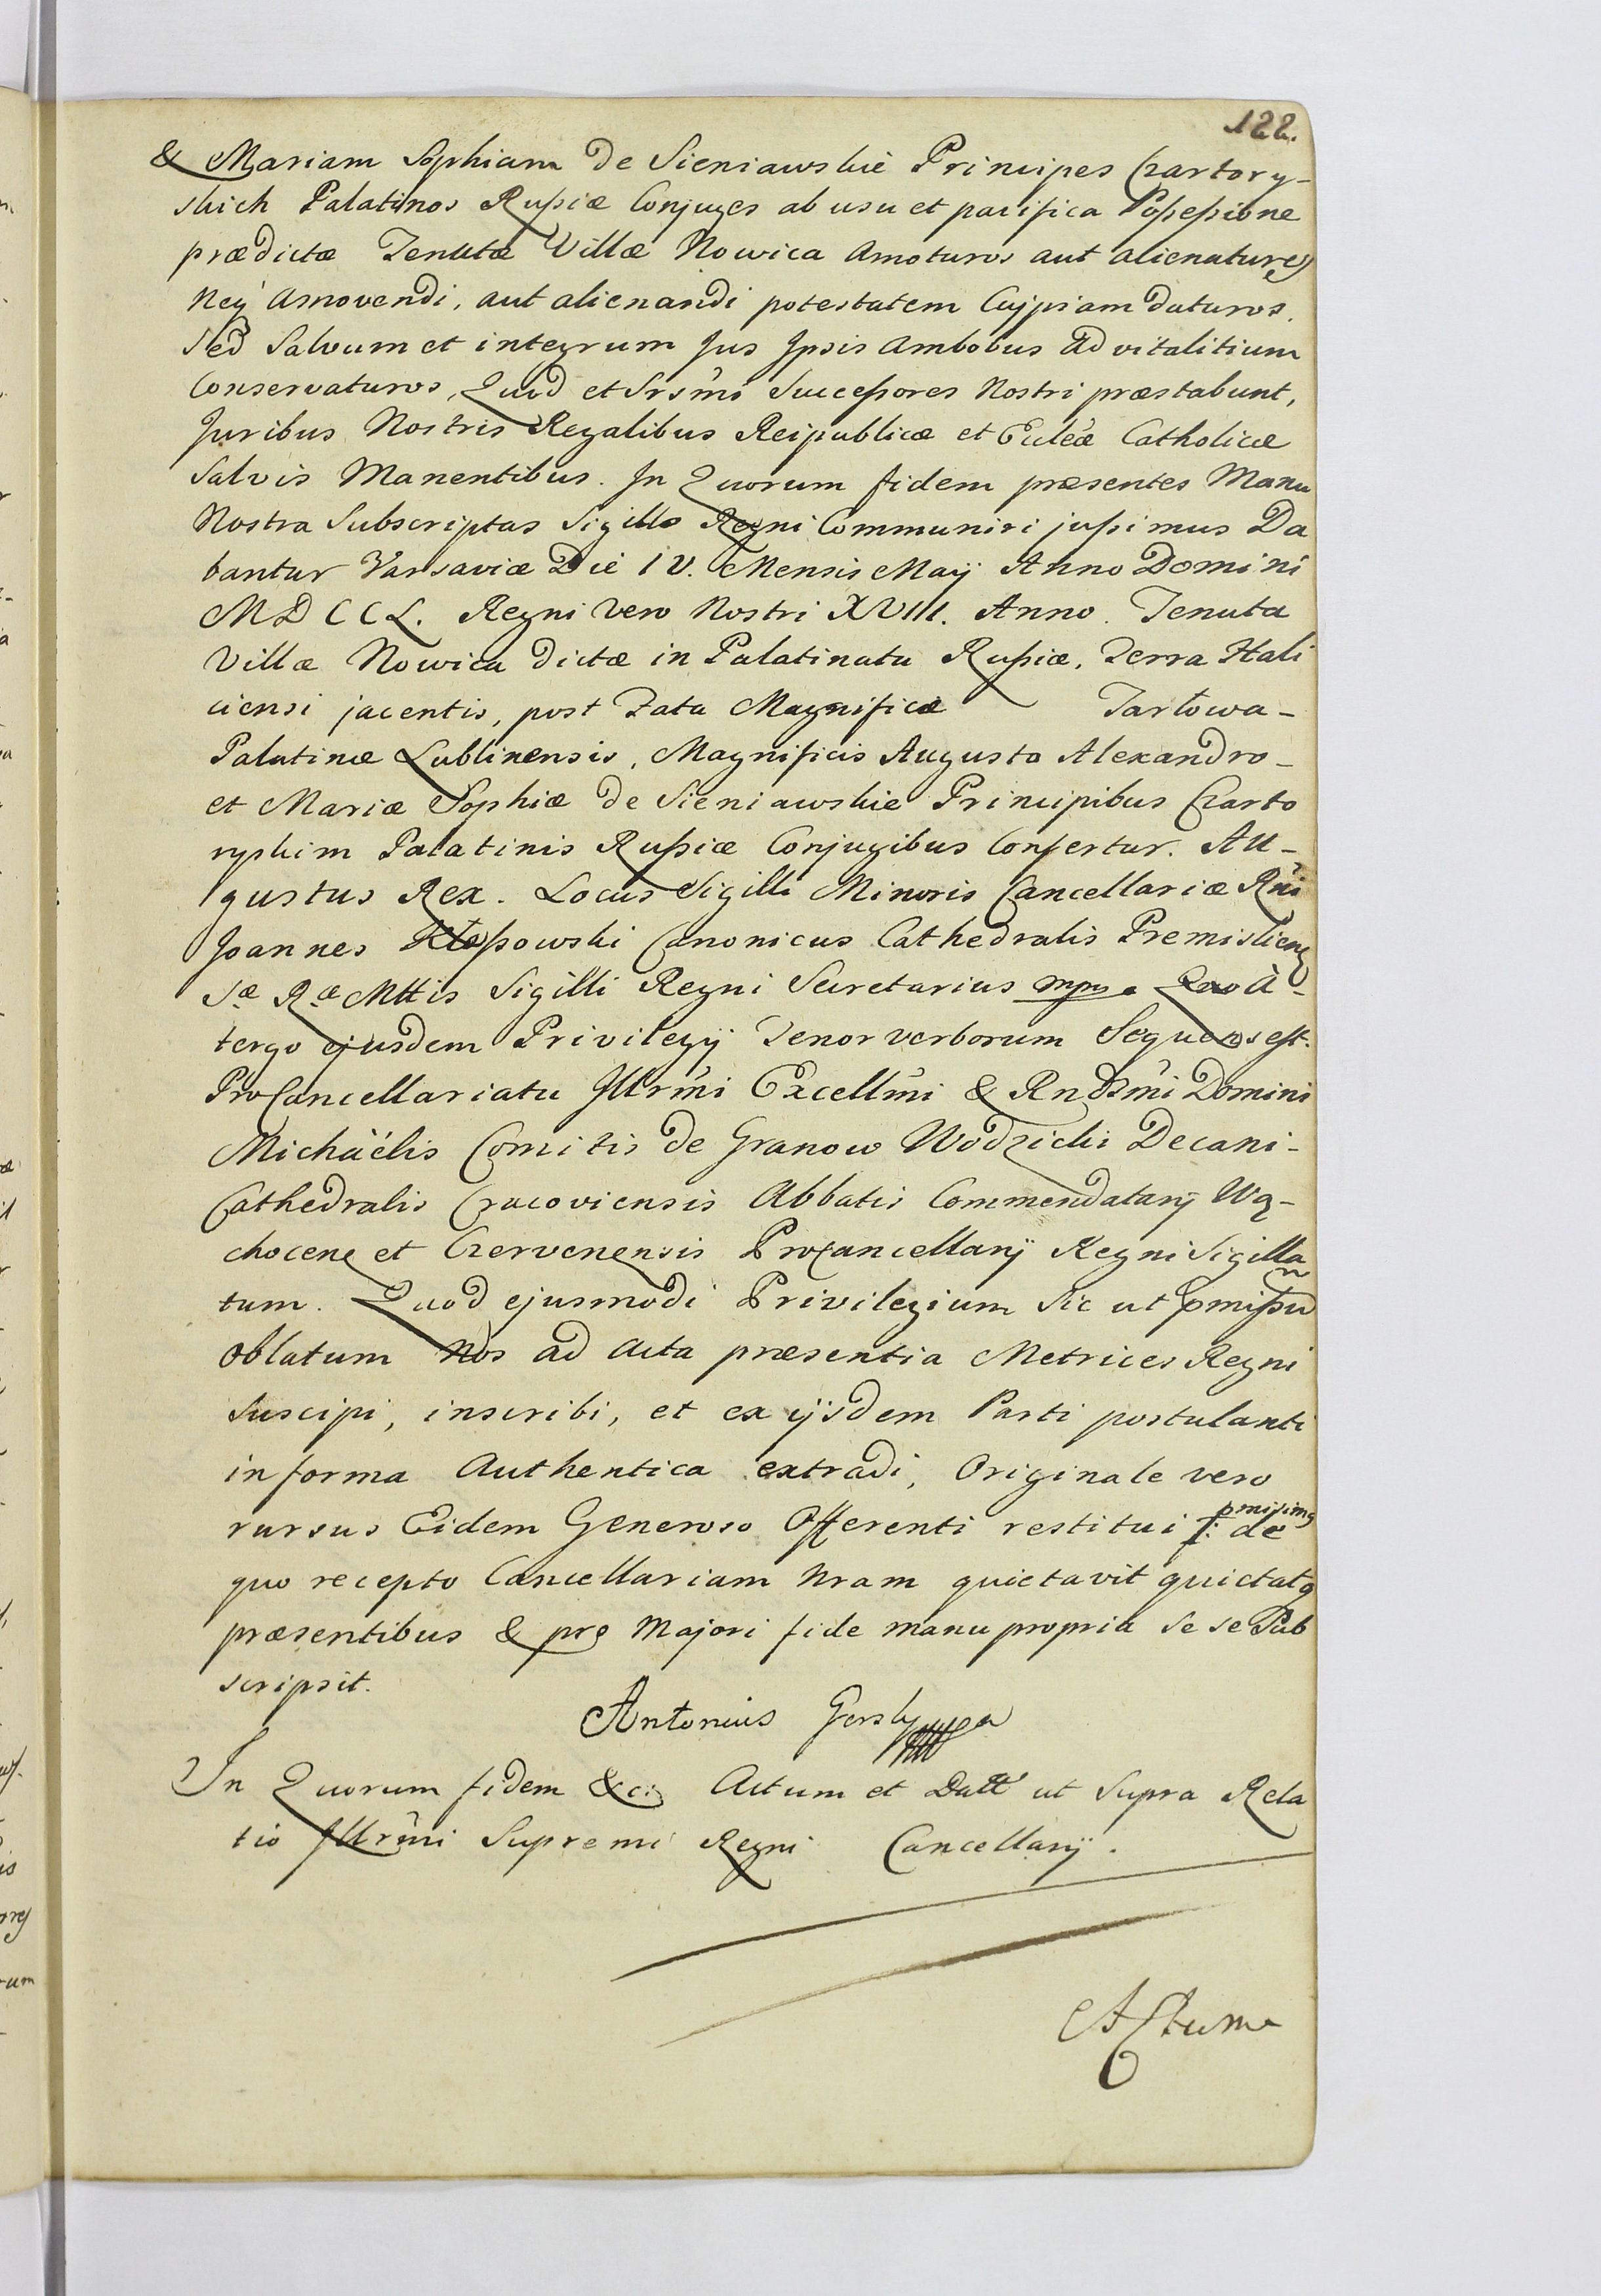 122.
& Mariam Sophiam de Sieniawskie Principes Czartory-
skich Palatinos Russiæ Conjuges ab usu et pacifica Possessione
prædictæ Tenutæ Villæ Nowica amoturos aut alienaturos
Neq amovendi, aut alienandi potestatem Cujpiam daturos.
Sed Salvum et integrum Jus Ipsis Ambobus ad vitalitium
Conservaturos, Quod et Srsmi Successores Nostri præstabunt,
Juribus Nostris Regalibus Reipublicæ et Eccleæ Catholicæ
Salvis Manentibus. In Quorum fidem præsentes Manu
Nostra Subscriptas Sigillo Regni Communiri jussimus Da
bantur Varsaviæ Die IV. Mensis Maij Anno Domini
MDCCL. Regni Vero Nostri XVIII. Anno. Tenuta
Villæ Nowica dictæ in Palatinatu Russiæ, Terra Hali
ciensi jacentis, post Fata Magnificæ Tarłowa-
Palatinæ Lublinensis, Magnificis Augusto Alexandro-
et Mariæ Sophiæ de Sieniawskie Principibus Czarto
ryskim Palatinis Russiæ Conjugibus Confertur. Au-
gustus Rex. Locus Sigilli Minoris Cancellariæ Rni
Joannes Kłossowski Canonicus Cathedralis Premislieng
Sæ Ræ Mttis Sigilli Regni Secretarius mpp. à-
tergo ejusdem Privilegij Tenor verborum Sequens est.
ProCancellariatu Illrmi Excellmi & Rndsmi Domini
Michäelis Comitis de Granow Wodzicki Decani-
Cathedralis Cracoviensis Abbatis Commendatarij Wą-
chocene et Czervenensis ProCancellarij Regni Sigilla
tum. Quod ejusmodi Privilegium Sic ut pmissu
Oblatum Nos ad Acta præsentia Metrices Regni
Suscipi, inscribi, et ex ijsdem Parti postulanti
in forma Authentica extradi, Originale vero
rursus Eidem Generoso Offerenti restitui pmisimg /: de
quo recepto Cancellariam Nram quietavit quietatq
præsentibus & pro Majori fide manu propria se se Sub
scripsit.
Antonius
In Quorum fidem &c: Actum et Datt ut Supra Rela
tio Illrmi Supremi Regni Cancellarij.